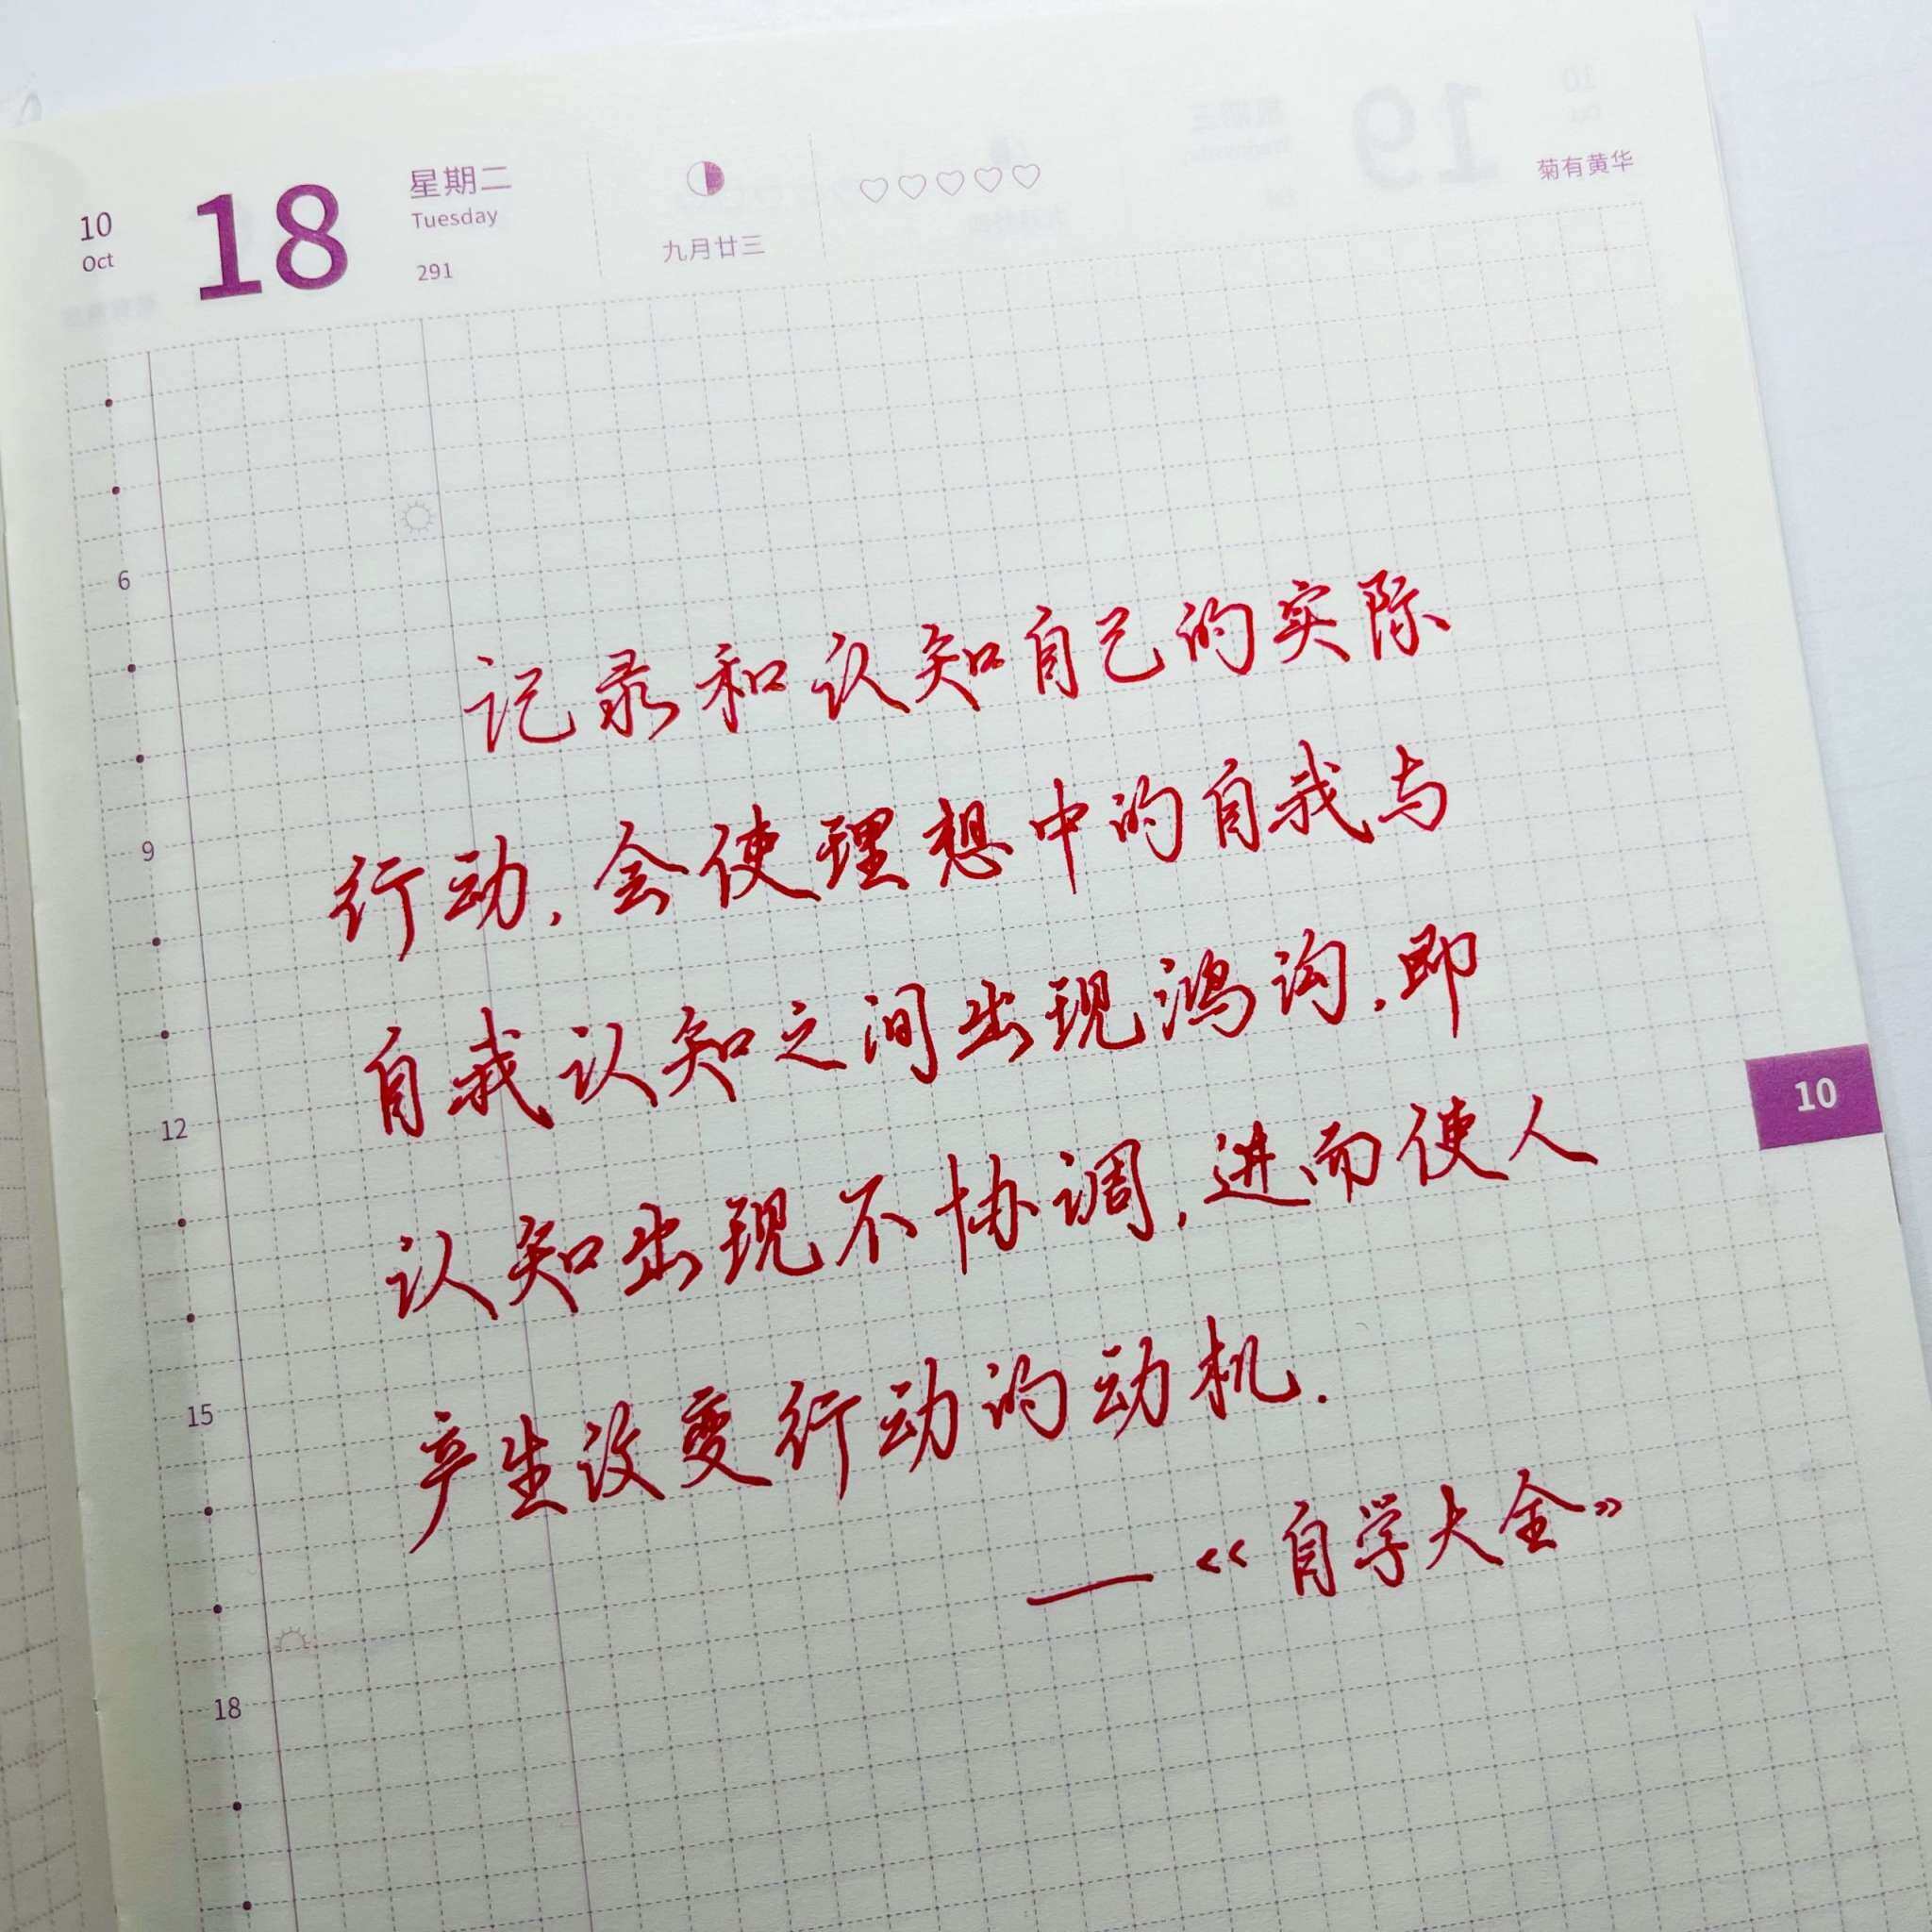 10
Oct
18
星期二
Tuesday
291
九月廿三
菊有黄华
6
9
12
15
18
10
记录和认知自己的实际
行动,会使理想中的自我与
自我认知之间出现鸿沟,即
认知出现不协调,进而使人
产生改变行动的动机.
——《自学大全》